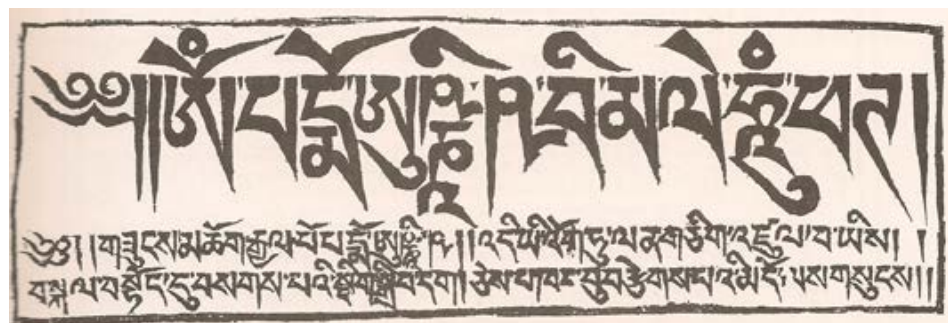 ༄༅།།ཨོཾ་པདྨོ་ཨུཥྞཱི་ཥ་བི་མ་ལེ་ཧཱུྃ་ཕཊ།
༄༅། །གཟུངས་མཆོག་རྒྱལ་པོ་པདྨོ་ཨུཥྞཱི་ཥ། །འདི་ཡི་འོག་ཏུ་ལན་གཅིག་འཛུལ་བ་ཡིས། །
བསྐལ་བ་སྟོང་དུ་བསགས་པའི་སྡིག་སྒྲིབ་དག། ཅེས་པ་ཁང་བུ་བརྩེགས་པའི་མདོ་ལས་གསུངས།།